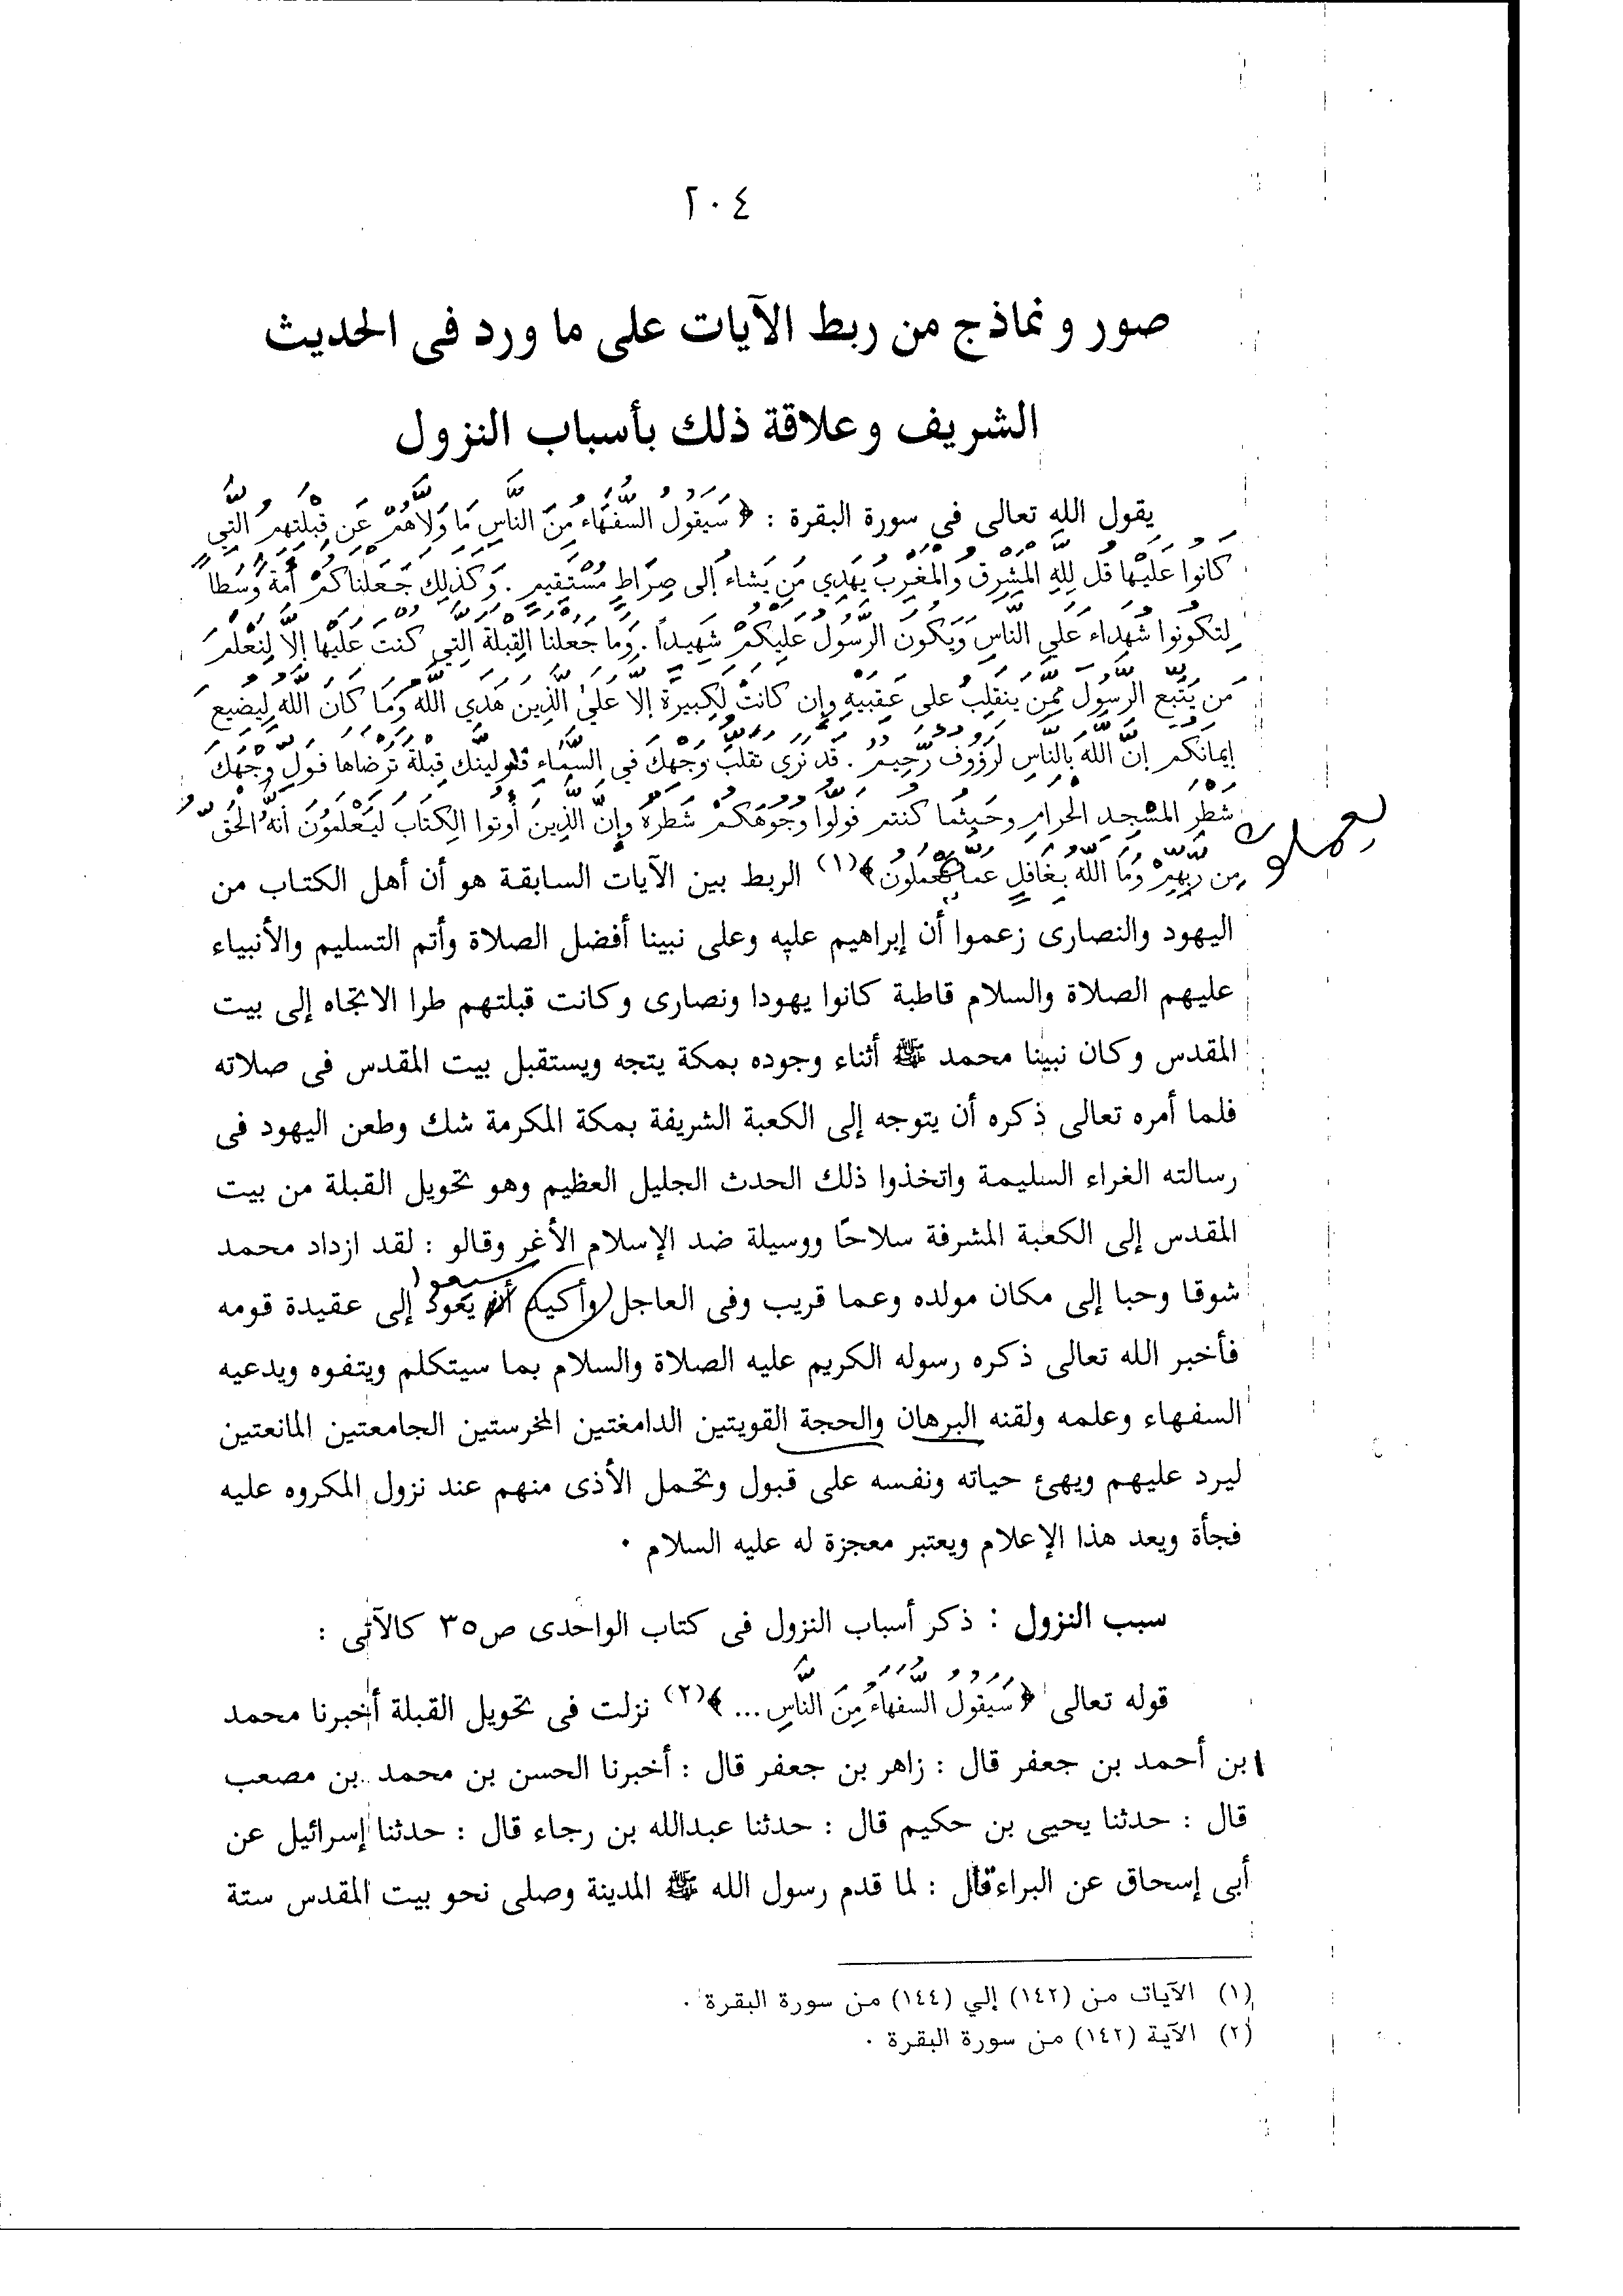 ٢٠٤
صور ونماذج من ربط الآيات على ما ورد فى الحديث
الشريف وعلاقة ذلك بأسباب النزول
يقول الله تعالى فى سورة البقرة : ﴿ سَيَقُولُ السُّفَهَاءُ مِنَ النَّاسِ مَا وَلَّاهُمْ عَن قِبْلَتِهِمُ الَّتِي
كَانُوا عَلَيْهَا قُل لِلَّهِ المَشْرِقُ وَالْمَغْرِبُ يَهْدِي مَن يَشَاءُ إلى صِرَاطٍ مُسْتَقِيمٍ . وَكَذلِكَ جَعَلْنَاكُمْ أُمَّةً وَسَطاً
لِتَكُونُوا شُهَدَاءَ عَلَى النَّاسِ وَيَكُونَ الرَّسُولُ عَلَيْكُمْ شَهِيداً . وَمَا جَعَلْنَا القِبْلَةَ الَّتِي كُنتَ عَلَيْهَا إلاَّ لِنَعْلَمَ
مَن يَتَّبِعُ الرَّسُولَ مِمَّن يَنقَلِبُ عَلى عَقِبَيْهِ وإن كَانَتْ لَكَبِيرَةً إلاَّ عَلَى الَّذِينَ هَدَى اللَّهُ وَمَا كَانَ اللَّهُ لِيُضِيعَ
إيمَانَكُمْ إنَّ اللَّهَ بِالنَّاسِ لَرَؤُوفٌ رَّحِيمٌ . قَدْ نَرَى تَقَلُّبَ وَجْهِكَ فِي السَّمَاءِ فَلَنُوَلِّيَنَّكَ قِبْلَةً تَرْضَاهَا فَوَلِّ وَجْهَكَ
شَطْرَ المَسْجِدِ الحَرَامِ وحَيْثُمَا كُنتُمْ فَوَلُّوا وُجُوهَكُمْ شَطْرَهُ وإنَّ الَّذِينَ أُوتُوا الكِتَابَ لَيَعْلَمُونَ أنَّهُ الحَقُّ
يعملون
مِن رَّبِّهِمْ وَمَا اللَّهُ بِغَافِلٍ عَمَّا يَعْمَلُونَ﴾(١) الربط بين الآيات السابقة هو أن أهل الكتاب من
اليهود والنصارى زعموا أن إبراهيم عليه وعلى نبينا أفضل الصلاة وأتم التسليم والأنبياء
عليهم الصلاة والسلام قاطبة كانوا يهودا ونصارى وكانت قبلتهم طرا الاتجاه إلى بيت
المقدس وكان نبينا محمد ﷺ أثناء وجوده بمكة يتجه ويستقبل بيت المقدس فى صلاته
فلما أمره تعالى ذكره أن يتوجه إلى الكعبة الشريفة بمكة المكرمة شك وطعن اليهود فى
رسالته الغراء السليمة واتخذوا ذلك الحدث الجليل العظيم وهو تحويل القبلة من بيت
المقدس إلى الكعبة المشرفة سلاحًا ووسيلة ضد الإسلام الأغر وقالو : لقد ازداد محمد
سيعودا
شوقا وحبا إلى مكان مولده وعما قريب وفى العاجل وأكيد أن يعود إلى عقيدة قومه
فأخبر الله تعالى ذكره رسوله الكريم عليه الصلاة والسلام بما سيتكلم ويتفوه ويدعيه
السفهاء وعلمه ولقنه البرهان والحجة القويتين الدامغتين المخرستين الجامعتين المانعتين
ليرد عليهم ويهئ حياته ونفسه على قبول وتحمل الأذى منهم عند نزول المكروه عليه
فجأة ويعد هذا الإعلام ويعتبر معجزة له عليه السلام .
سبب النزول : ذكر أسباب النزول فى كتاب الواحدى ص٣٥ كالآتى :
قوله تعالى ﴿ سَيَقُولُ السُّفَهَاءُ مِنَ النَّاسِ ... ﴾(٢) نزلت فى تحويل القبلة أخبرنا محمد
ابن أحمد بن جعفر قال : زاهر بن جعفر قال : أخبرنا الحسن بن محمد بن مصعب
قال : حدثنا يحيى بن حكيم قال : حدثنا عبدالله بن رجاء قال : حدثنا إسرائيل عن
أبى إسحاق عن البراء قال : لما قدم رسول الله ﷺ المدينة وصلى نحو بيت المقدس ستة
(١) الآيات من (١٤٢) إلي (١٤٤) من سورة البقرة .
(٢) الآية (١٤٢) من سورة البقرة .